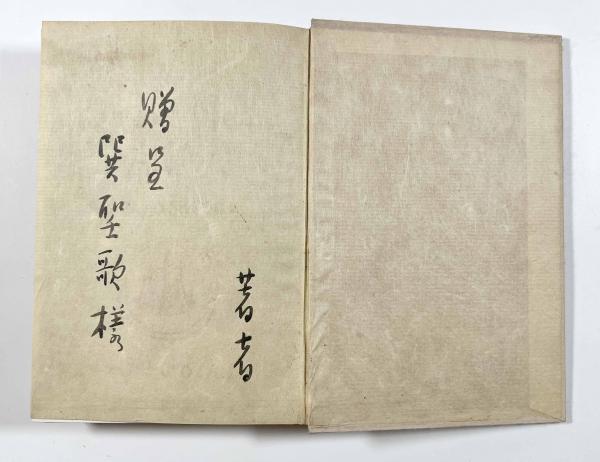 贈呈
巽聖歌様
著者